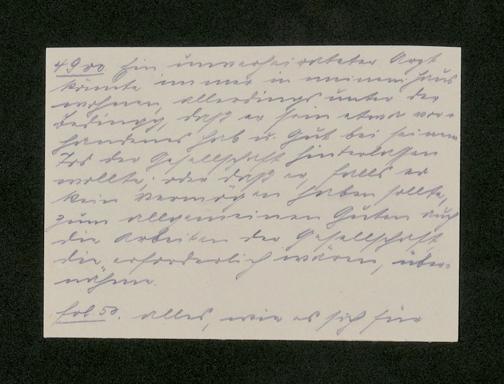 49 00 Ein unverheirateter Arzt
könnte immer in meinem Haus
wohnen, allerdings unter der
Bedingg, daß er sein etwa vor=
handenes Hab u. Gut bei seinem
Tod der Gesellschaft hinterlassen
wollte, oder daß er, falls er
kein Vermögen haben sollte,
zum allgemeinen Guten auch
die Arbeiten der Gesellschaft
die erforderlich wären, über-
nähme.
50. Alles, wie es sich für